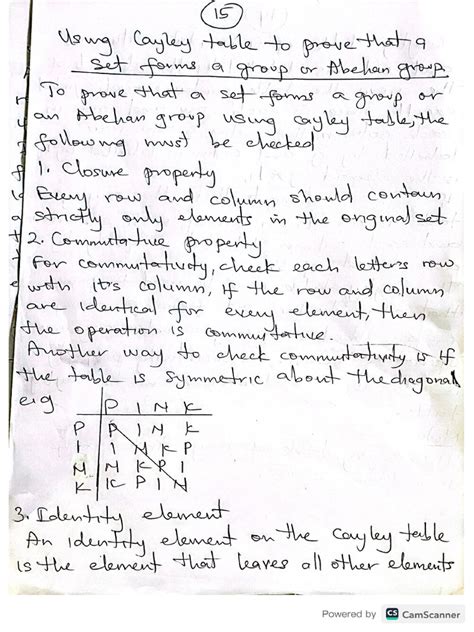 15
Using Cayley table to prove that a
set forms a group or Abelian group
To prove that a set forms a group or
an Abelian group using cayley table, the
following must be checked
1. Closure property
Every row and column should contain
strictly only elements in the original set
2. Commutative property
For commutativity, check each letters row
with it's column, if the row and column
are identical for every element, then
the operation is commutative.
Another way to check commutativity is if
the table is symmetric about the diagonal
e.g P I N K
P P I N K
I I N K P
N N K P I
K K P I N
3. Identity element
An identity element on the Cayley table
is the element that leaves all other elements
Powered by CS CamScanner